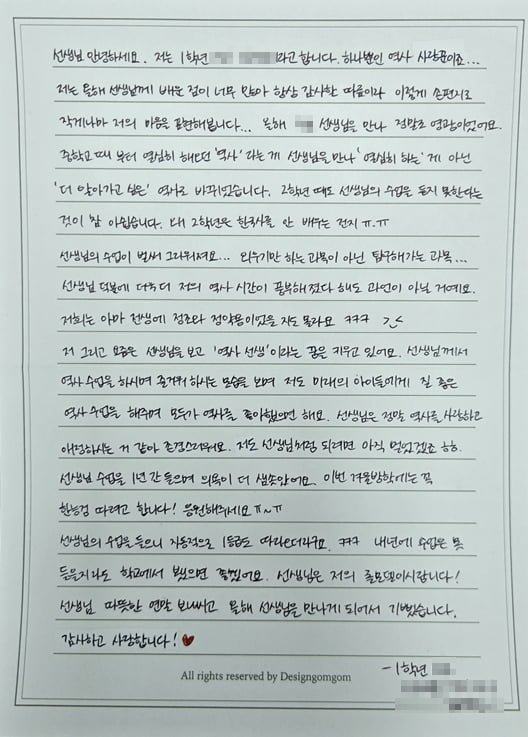 선생님 안녕하세요. 저는 1학년 라고 합니다. 하나뿐인 역사 사랑꾼이죠...
저는 올해 선생님께 배운 점이 너무 많아 항상 감사한 따름이라 이렇게 손편지로
작게나마 저의 마음을 표현해봅니다... 올해 선생님을 만나 정말로 영광이었어요.
중학교 때부터 열심히 해오던 '역사'라는 게 선생님을 만나 '열심히 하는'게 아닌
'더 알아가고 싶은' 역사로 바뀌었습니다. 2학년 때도 선생님의 수업을 듣지 못한다는
것이 참 아쉽습니다. 왜 2학년은 한국사를 안 배우는 건지 ㅠ.ㅠ
선생님의 수업이 벌써 그리워져요... 외우기만 하는 과목이 아닌 탐구해가는 과목...
선생님 덕분에 더욱 더 저의 역사 시간이 풍부해졌다 해도 과언이 아닐 거예요.
저희는 아마 전생에 정조와 정약용이었을 지도 몰라요 ㅋㅋㅋ >_<
저 그리고 요즘은 선생님을 보고 '역사 선생'이라는 꿈을 키우고 있어요. 선생님께서
역사 수업을 하시며 즐거워 하시는 모습을 보며 저도 미래의 아이들에게 질 좋은
역사 수업을 해주며 모두가 역사를 좋아했으면 해요. 선생님은 정말 역사를 사랑하고
애정하시는 거 같아 존경스러워요. 저도 선생님처럼 되려면 아직 멀었겠죠 ㅎㅎ.
선생님 수업을 1년간 들으며 의욕이 더 샘솟았어요. 이번 겨울방학에는 꼭
한능검 따려고 합니다! 응원해주세요 ㅠ~ㅠ
선생님의 수업을 들으니 자동적으로 1등급도 따라오더라구요. ㅋㅋㅋ 내년에 수업은 못
들을지라도 학교에서 뵀으면 좋겠어요. 선생님은 저의 롤모델이시랍니다!
선생님 따뜻한 연말 보내시고 올해 선생님을 만나게 되어서 기뻤습니다.
감사하고 사랑합니다! ♥
All rights reserved by Designgomgom
-1학년